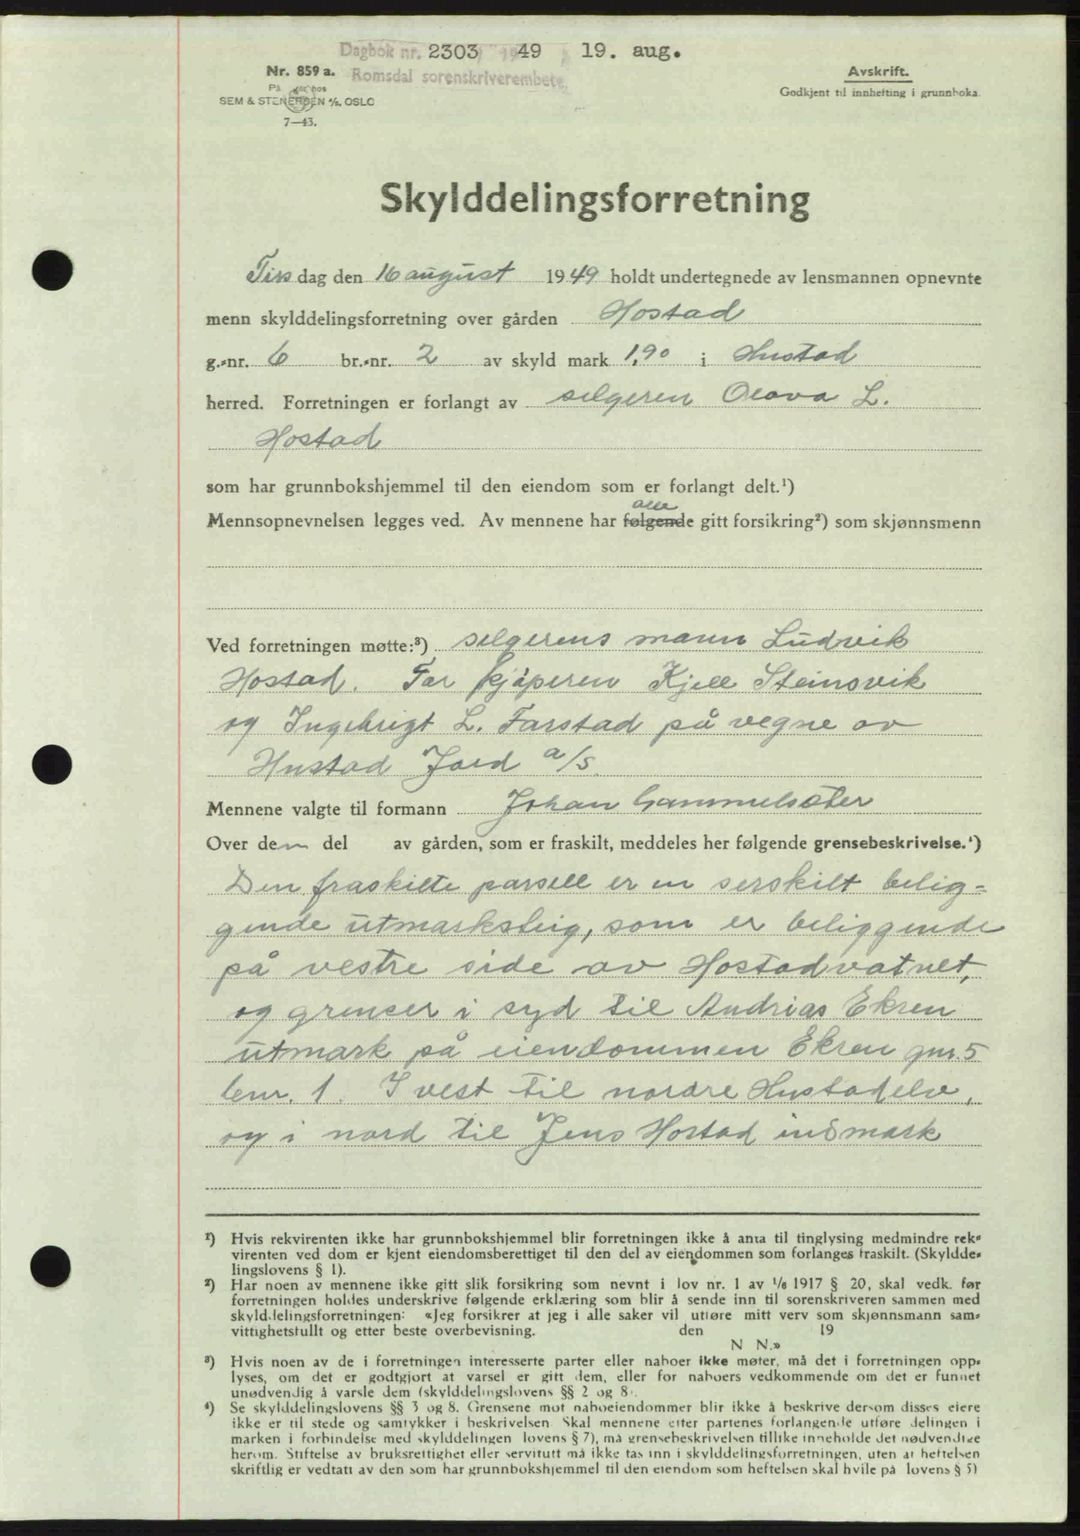 Dagbok nr. 2303 1949 19. aug.
Romsdal sorenskriverembete
Nr. 859 a.
På lager hos
SEM & STENERSEN A/S, OSLO
7—43.
Avskrift.
Godkjent til innhefting i grunnboka.
Skylddelingsforretning
Tirsdag den 16 august 1949 holdt undertegnede av lensmannen opnevnte
menn skylddelingsforretning over gården Hostad
g.-nr. 6 br.-nr. 2 av skyld mark 1,90 i Hustad
herred. Forretningen er forlangt av selgeren Olava L.
Hostad
som har grunnbokshjemmel til den eiendom som er forlangt delt.¹)
alle
Mennsopnevnelsen legges ved. Av mennene har følgende gitt forsikring²) som skjønnsmenn
Ved forretningen møtte:³) selgerens mann Ludvik
Hostad. For kjøperen Kjell Steinsvik
og Ingebrigt L. Farstad på vegne av
Hustad Jord a/s.
Mennene valgte til formann Johan Gammelsæter
Over den del av gården, som er fraskilt, meddeles her følgende grensebeskrivelse.⁴)
Den fraskilte parsell er en serskilt belig-
gende utmarksteig, som er beliggende
på vestre side av Hostadvatnet,
og grenser i syd til Andrias Ekren
utmark på eiendommen Ekren gnr. 5
bnr. 1. I vest til nordre Hustadelv,
og i nord til Jens Hostad innmark
¹) Hvis rekvirenten ikke har grunnbokshjemmel blir forretningen ikke å anta til tinglysing medmindre rek-
virenten ved dom er kjent eiendomsberettiget til den del av eiendommen som forlanges fraskilt. (Skyldde-
lingslovens § 1).
²) Har noen av mennene ikke gitt slik forsikring som nevnt i lov nr. 1 av 1/6 1917 § 20, skal vedk. før
forretningen holdes underskrive følgende erklæring som blir å sende inn til sorenskriveren sammen med
skylddelingsforretningen: «Jeg forsikrer at jeg i alle saker vil utføre mitt verv som skjønnsmann sam-
vittighetsfullt og etter beste overbevisning. den 19
N N.»
³) Hvis noen av de i forretningen interesserte parter eller naboer ikke møter, må det i forretningen opp-
lyses, om det er godtgjort at varsel er gitt dem, eller for naboers vedkommende om det er funnet
unødvendig å varsle dem (skylddelingslovens §§ 2 og 8).
⁴) Se skylddelingslovens §§ 3 og 8. Grensene mot naboeiendommer blir ikke å beskrive dersom disses eiere
ikke er til stede og samtykker i beskrivelsen. Skal mennene etter partenes forlangende utføre delingen i
marken i forbindelse med skylddelingen (lovens § 7), må grensebeskrivelsen tillike inneholde det nødvendige
herom. Stiftelse av bruksrettighet eller servitutt må ikke tas inn i skylddelingsforretningen, uten at heftelsen
skriftlig er vedtatt av den som har grunnbokshjemmel til den eiendom som heftelsen skal hvile på (lovens § 5)